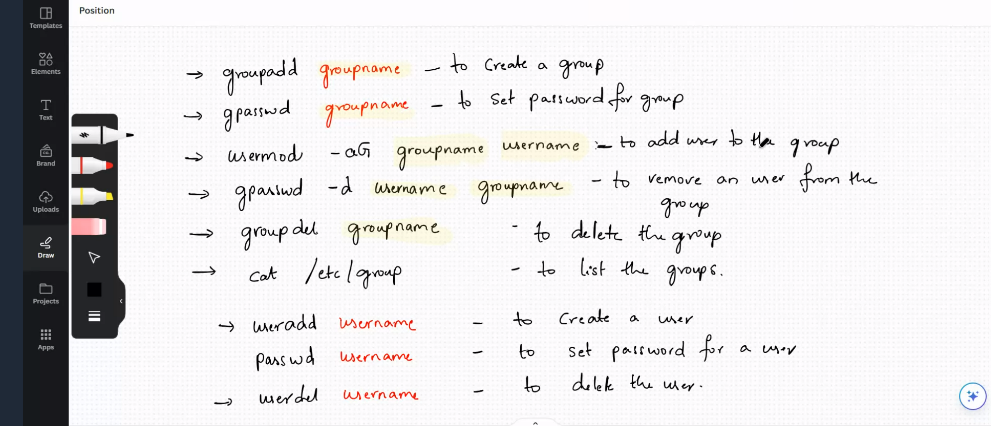 Position
Templates
Elements
Text
Brand
Uploads
Draw
Projects
Apps
→ groupadd groupname – to create a group
→ gpasswd groupname – to set password for group
→ usermod -aG groupname username :- to add user to the group
→ gpasswd -d username groupname – to remove an user from the
group
→ groupdel groupname - to delete the group
→ cat /etc/group - to list the groups.
→ useradd username – to create a user
passwd username – to set password for a user
→ userdel username – to delete the user.